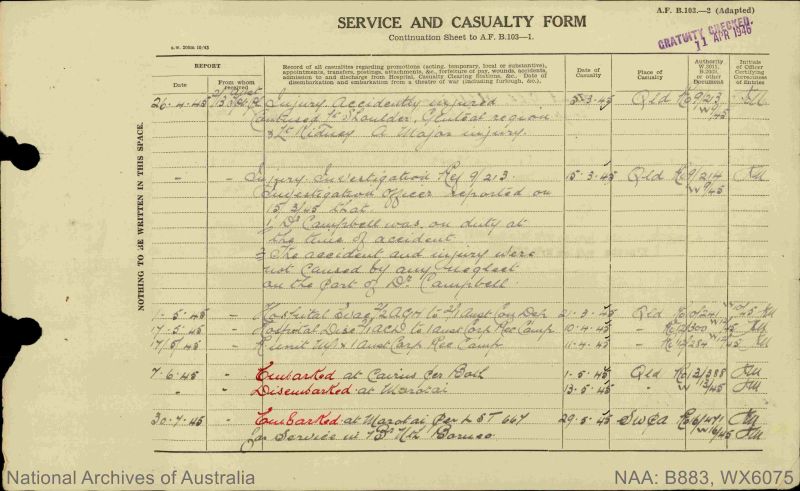 A.F. B.103.—2 (Adapted)
SERVICE AND CASUALTY FORM
Continuation Sheet to A.F. B.103—1.
GRATUITY CHECKED.
11 APR 1946
REPORT
Date
From whom received
Record of all casualties regarding promotions (acting, temporary, local or substantive), appointments, transfers, postings, attachments, &c., forfeiture of pay, wounds, accidents, admission to and discharge from Hospital, Casualty Clearing Stations, &c. Date of disembarkation and embarkation from a theatre of war (including furlough, &c.)
Date of Casualty
Place of Casualty
Authority W.3011, B.2069, or other Document
Initials of Officer Certifying Correctness of Entries
NOTHING TO BE WRITTEN IN THIS SPACE.
26-4-45 Injury. Accidently injured 5-3-45 Qld R69/213
Contused Lt Shoulder, Gluteal region
& Lt Kidney A Major injury.
Injury Investigation R69/213 15-3-45 Qld R69/214
Investigation Officer reported on
15/3/45 that.
1/ Dvr Campbell was on duty at
the time of accident
2/ The accident and injury were
not caused by any neglect
on the part of Dvr Campbell.
1-5-45 Hospital Evac 2/2 AGH to 2/1 Aust Con Dep 21-3-45 Qld
17-5-45 Hospital Disc 2/1 ACD to 1 Aust Corp Rec Camp 10-4-45
17/5/45 1 Aust Corp Rec Camp 11-4-45
7-6-45 Embarked at Cairns Per Both 1-5-45 Qld
Disembarked at Morotai 13-5-45
30-7-45 Embarked at Morotai Per LST 667 29-5-45 SWPA
for Service in Bs Nth Borneo
National Archives of Australia
NAA: B883, WX6075